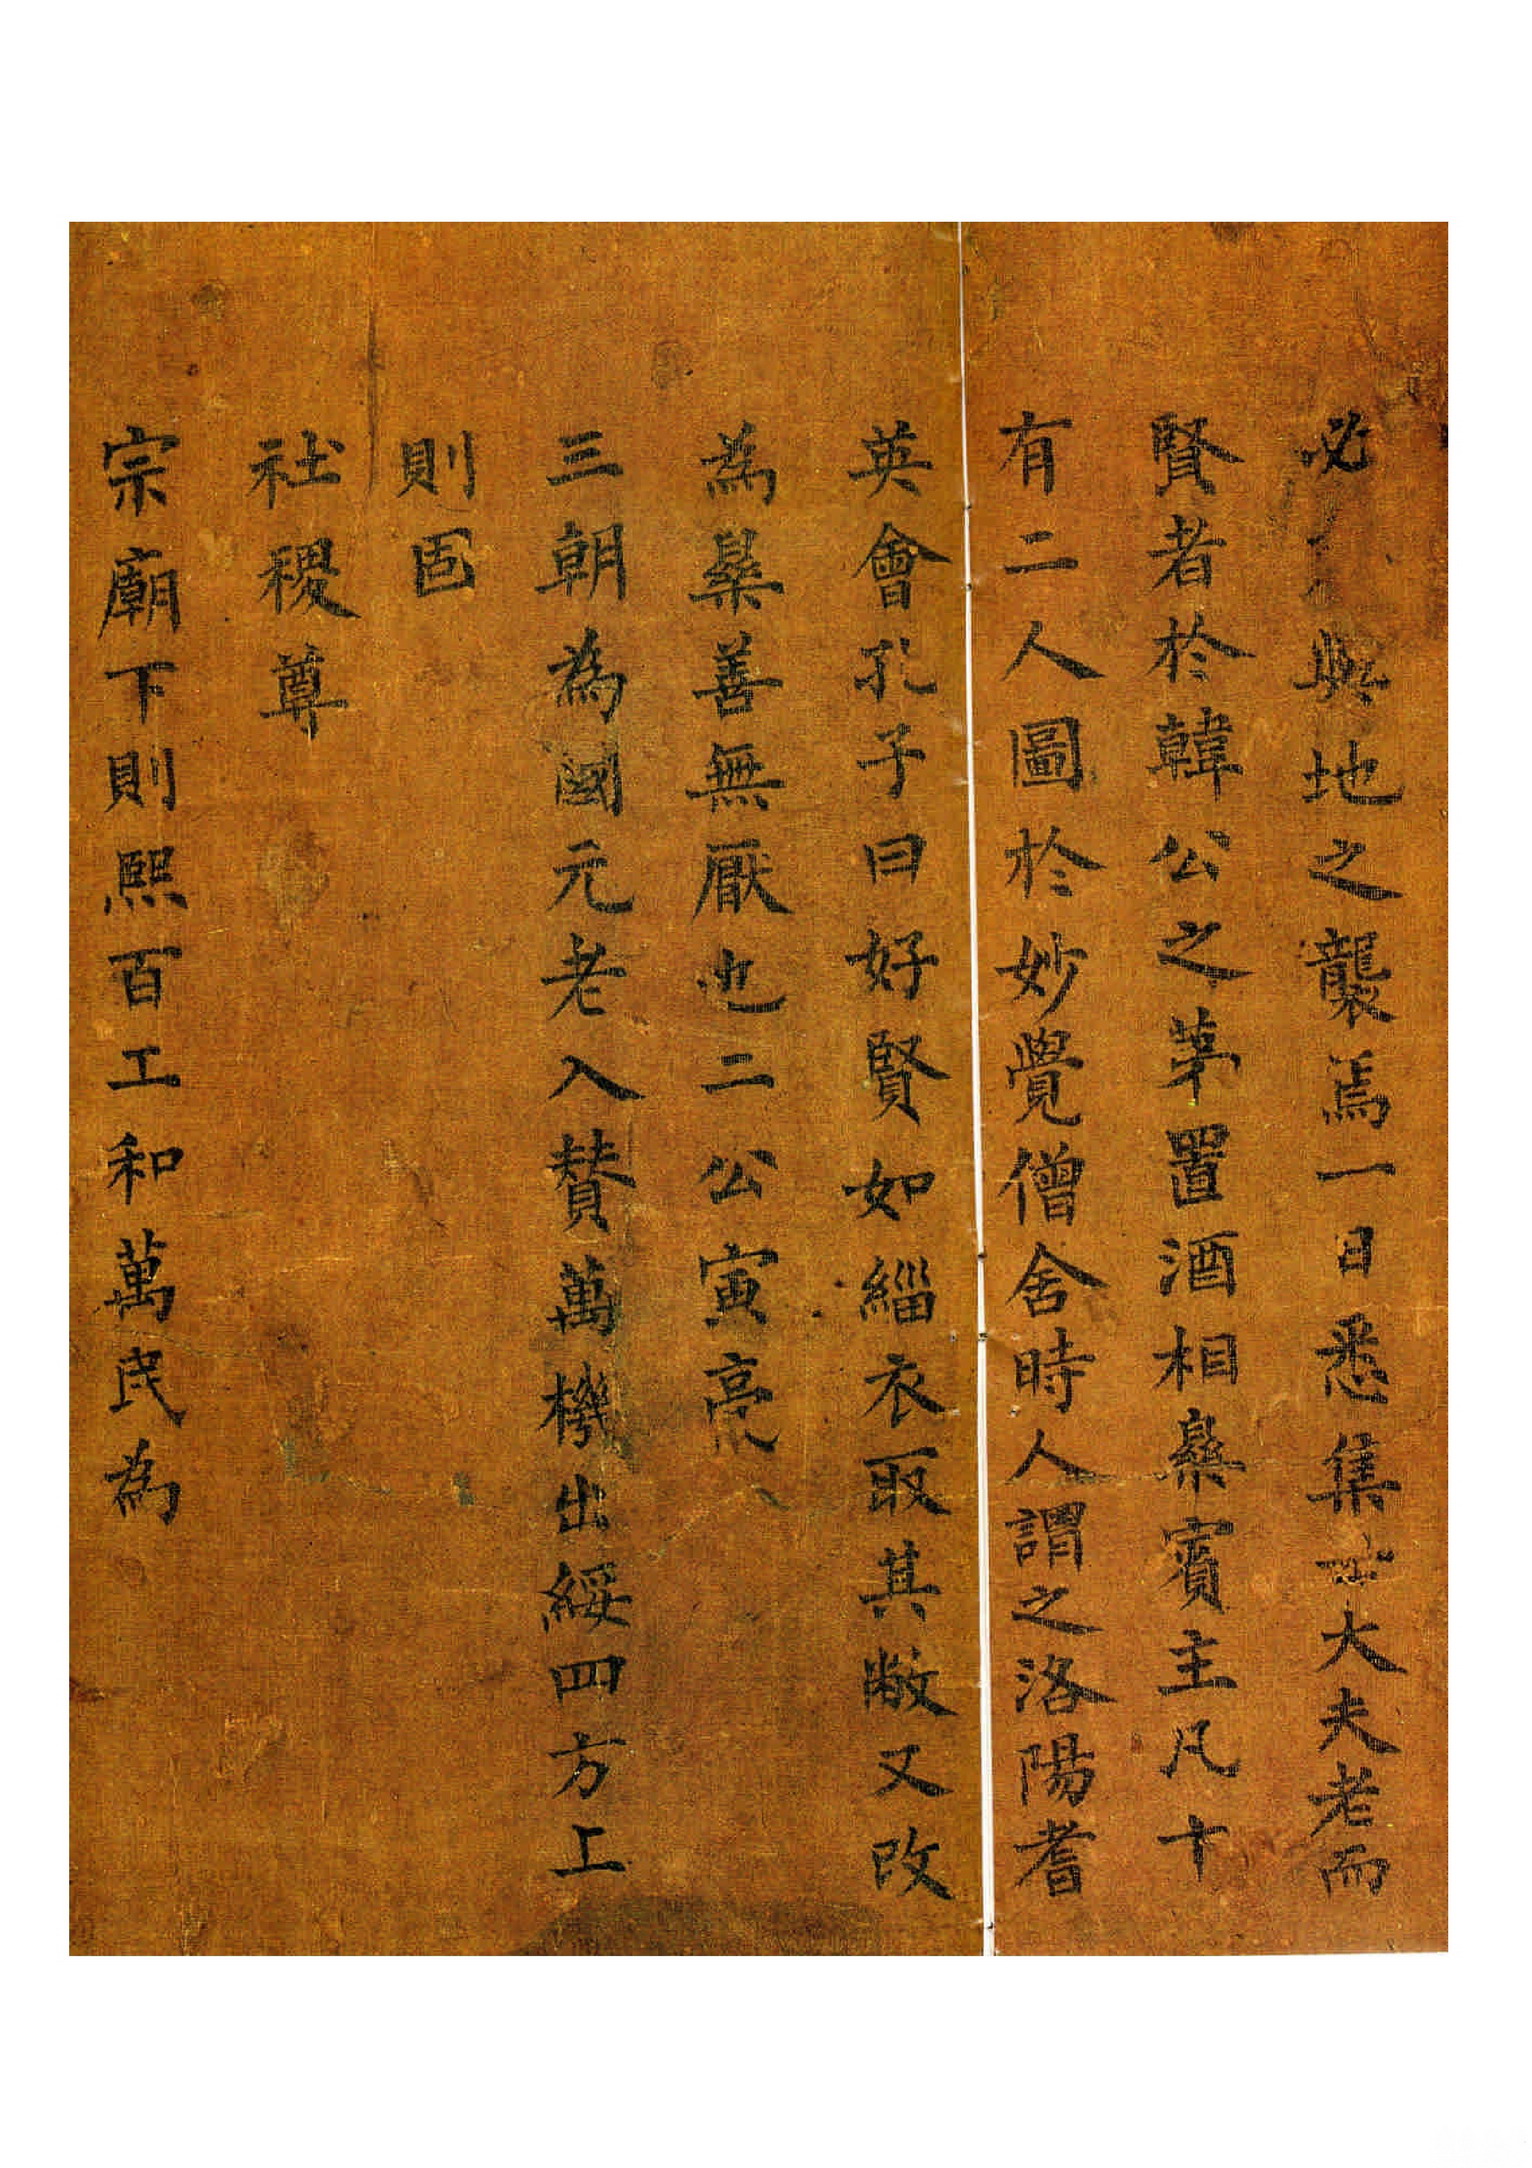 必與地之襲焉一日悉集士大夫老而
賢者於韓公之苐置酒相樂賓主凡十
有二人圖於妙覺僧舍時人謂之洛陽耆
英會孔子曰好賢如緇衣取其敝又改
為樂善無厭也二公寅亮
三朝為國元老入賛萬機出綏四方上
則固
社稷尊
宗廟下則熙百工和萬民為